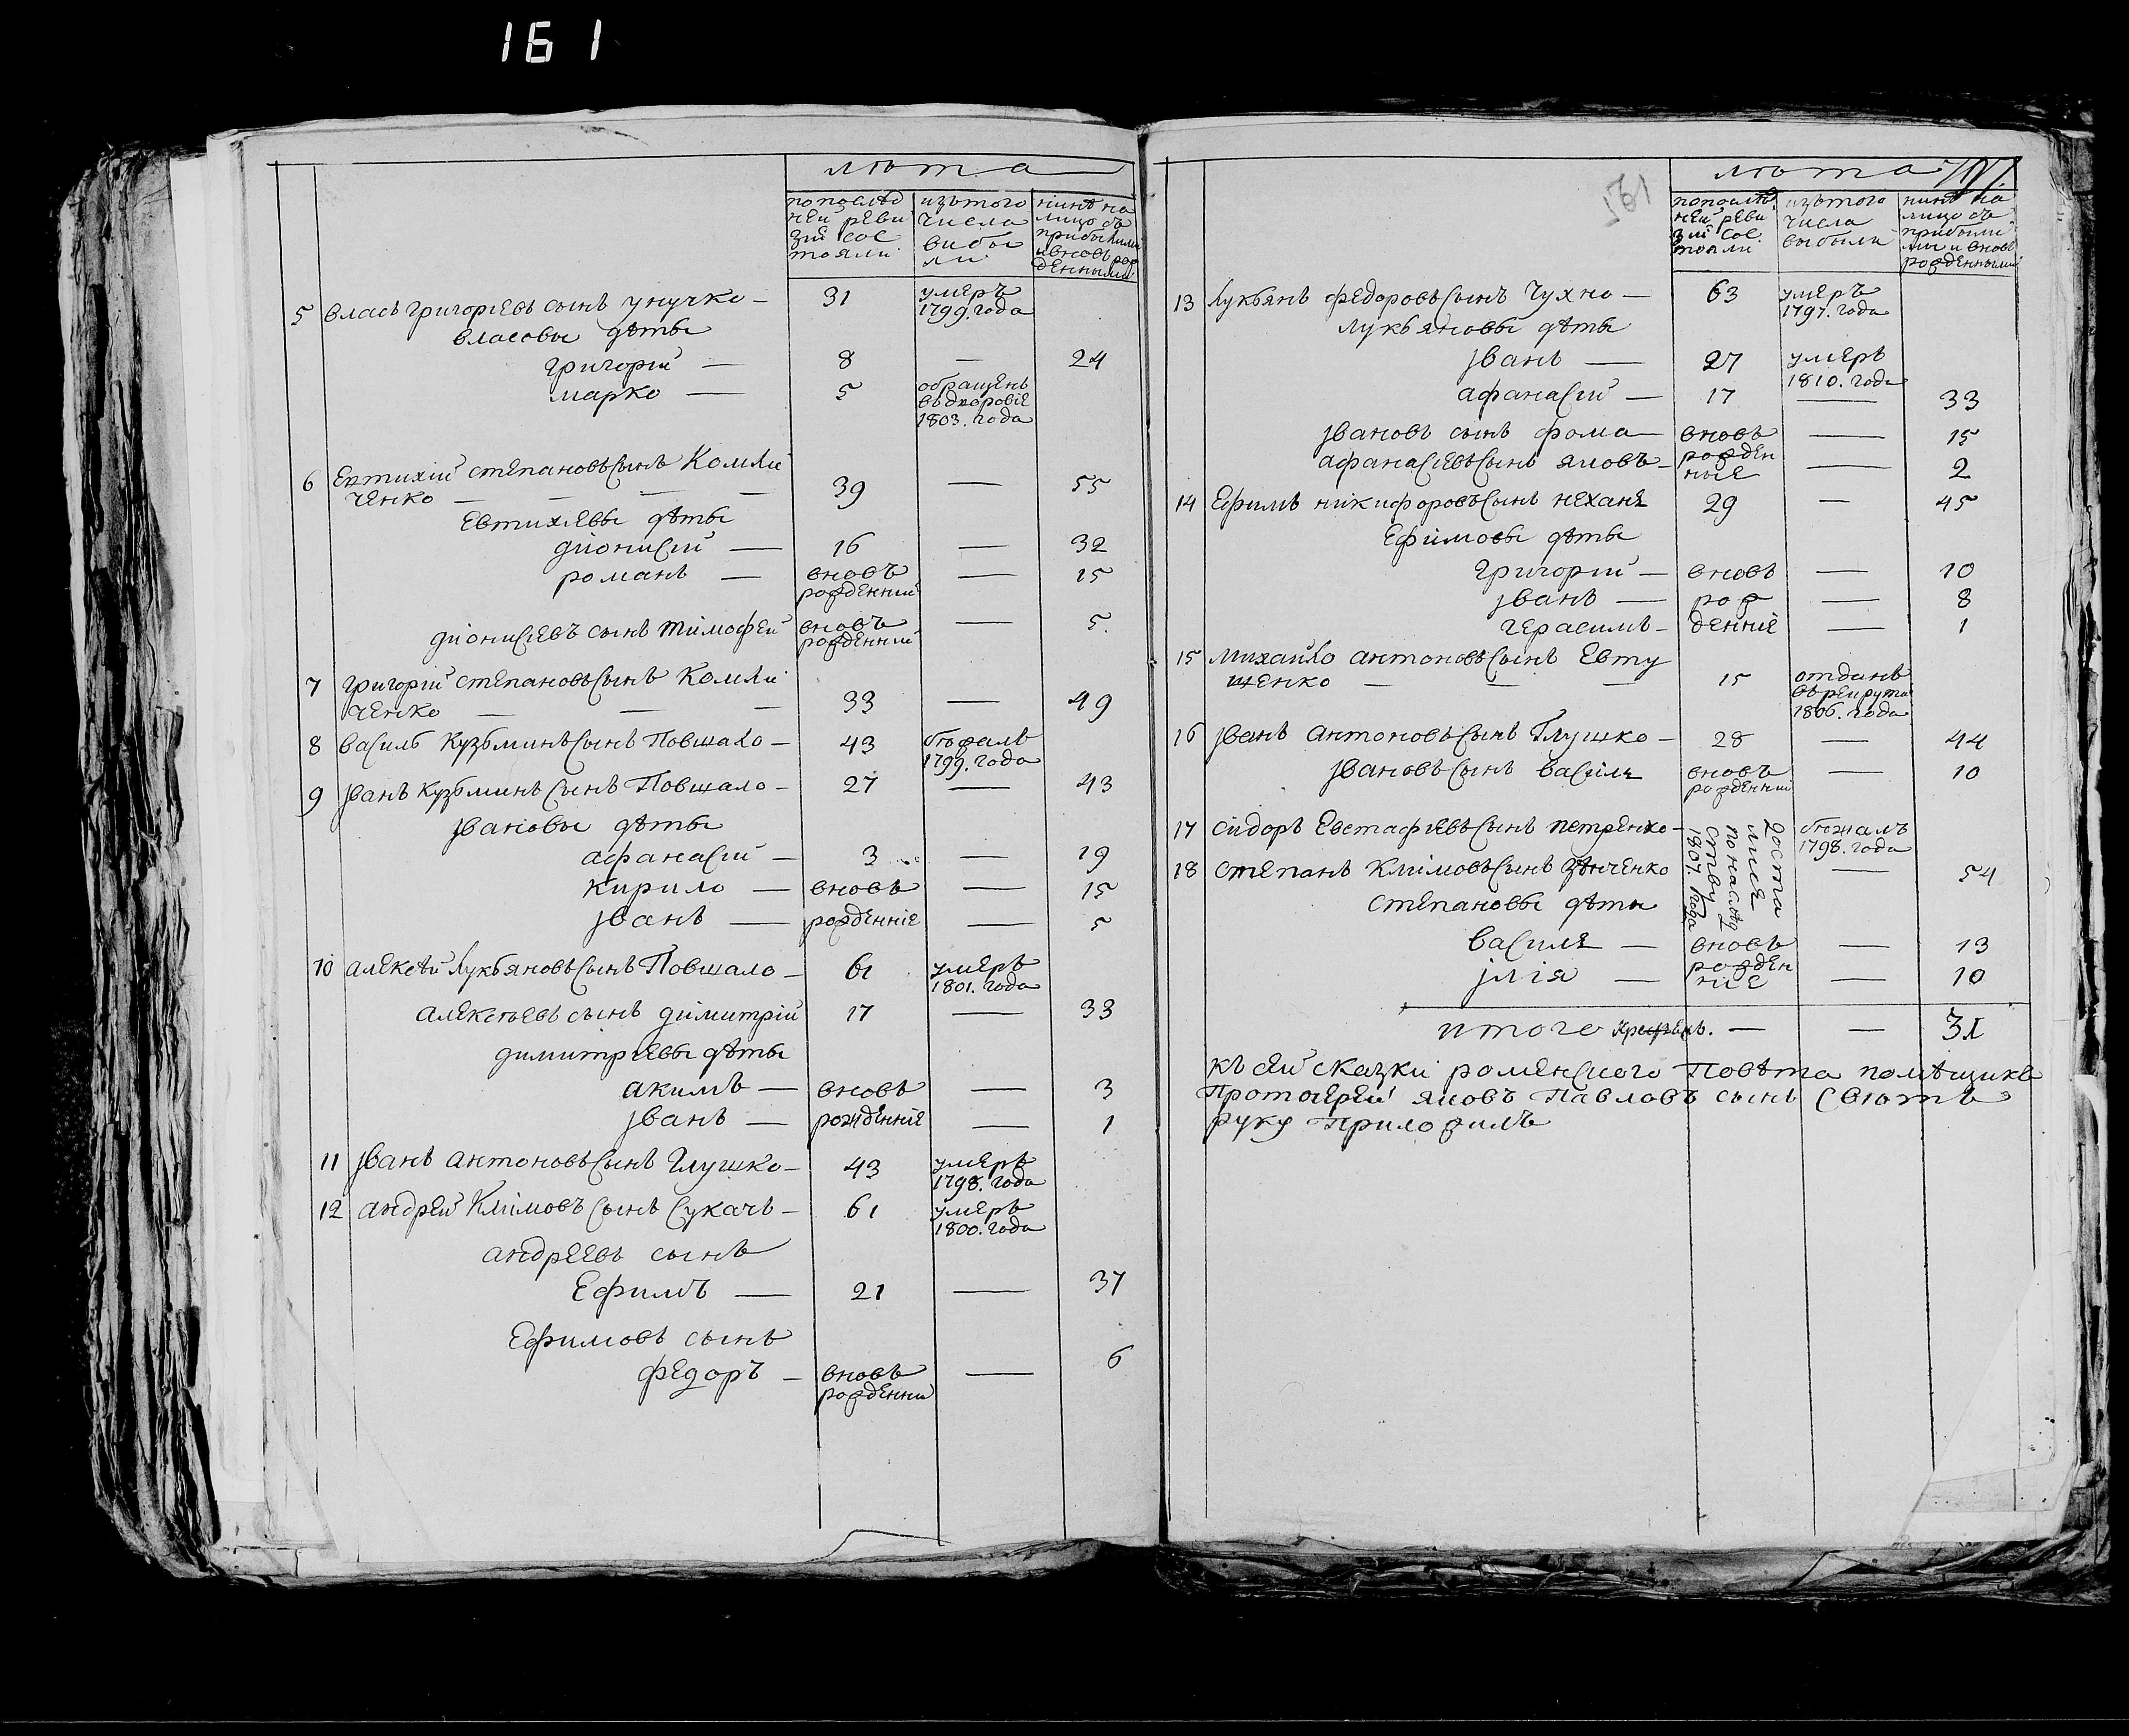 161
лѣта
попослѣд
ней реви
зіи сос
тояли
изътого
числа
выбы
ли
нинѣ на
лицо съ
прибылими
ивновь рож
денными
5 власъ григоріевъ сынъ унучко — 31 умеръ
1799. года
власовы дѣты
григорій — 8 — 24
марко — 5 обращенъ
въ
1803. года
6 Евтихій степановъ сынъ Комли
ченко — — — — 39 — 55
Евтихіевы дѣты
діонисій — 16 — 32
романъ — вновь — 15
рожденній
діонисіевъ сынъ тимофей вновь — 5.
рожденній
7 григорій степановъ сынъ Комли
ченко — — — 33 — 49
8 василь Кузьминъ сынъ Повшало — 43 бѣжалъ
1799. года
9 іванъ Кузьминъ сынъ Повшало — 27 — 43
івановы дѣты
афанасій — 3 — 19
кирило — вновь — 15
іванъ — рожденніе — 5
10 алексѣй Лукьяновъ сынъ Повшало — 61 умеръ
1801. года
алексѣевъ сынъ димитрій 17 — 33
димитріевы дѣты
акимъ — вновь — 3
іванъ — рожденніе — 1
11 іванъ антоновъ сынъ Глушко — 43 умеръ
1798. года
12 андрей Климовъ сынъ Сукачъ — 61 умеръ
1800. года
андреевъ сынъ
Ефимъ — 21 — 37
Ефимовъ сынъ
федоръ — вновь — 6
рожденній
161
лѣта
попослѣд
ней реви
зіи сос
тояли
изътого
числа
выбыли
нинѣ на
лицо съ
прибыли
ми и вновь
рожденными
13 Лукьянъ федоровъ сынъ Чухно — 63 умеръ
1797. года
лукьяновы дѣты
іванъ — 27 умеръ
1810. года
афанасій — 17 — 33
івановъ сынъ фома — вновь — 15
афанасіевъ сынъ яковъ — рожден — 2
ные
14 Ефимъ никифоровъ сынъ нехане 29 — 45
Ефимовы дѣты
григорій — вновь — 10
іванъ — рож — 8
герасимъ — денніе — 1
15 михайло антоновъ сынъ Евту
щенко — — — 15 отданъ
въ рекрута
1806. года
16 іванъ антоновъ сынъ Глушко — 28 — 44
івановъ сынъ василе вновь — 10
рожденній
17 сидоръ Евстафіевъ сынъ петренко — бѣжалъ
1798. года
доста
лисе
понаслѣд
ству
1807. года
18 степанъ Климовъ сынъ Зѣнченко — 54
степановы дѣты
василе — вновь — 13
ілія — рожден — 10
ніе
итого — — 31
къ сей сказки роменского Повѣта помѣщикъ
Протоіерей яковъ Павловъ сынъ
руку приложилъ